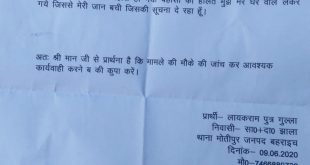 गये जिससे मेरी जान बची जिसकी सूचना दे रहा हूँ।
अतः श्री मान जी से प्रार्थना है कि मामले की मौके की जांच कर आवश्यक
कार्यवाही करने ब की कृपा करें।
प्रार्थी– लायकराम पुत्र गुल्ला
निवासी– सा०+दा० झाला
थाना मोतीपुर जनपद बहराइच
दिनांक– 09.06.2020
मो०–